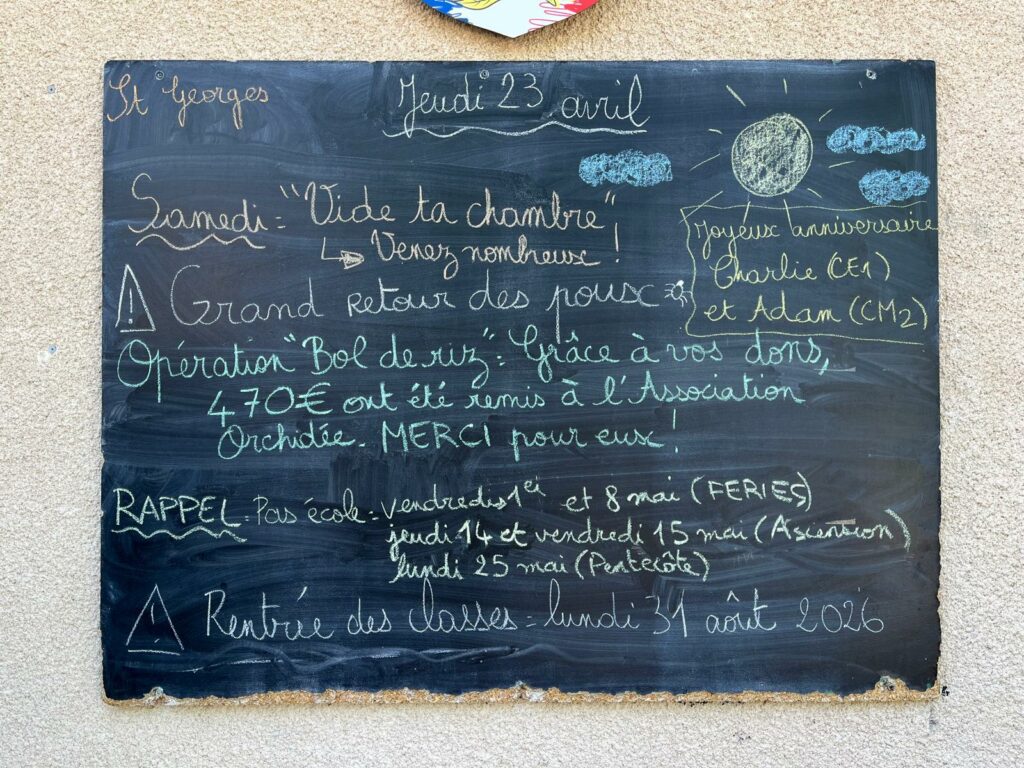 St Georges
Jeudi 23 avril
Samedi = "Vide ta chambre"!
Venez nombreux !
Joyeux anniversaire
Charlie (CE1)
et Adam (CM2)
Grand retour des poux
Opération "Bol de riz" : Grâce à vos dons,
470€ ont été remis à l'Association
Orchidée. MERCI pour eux !
RAPPEL - Pas école = vendredis 1er et 8 mai (FERIES)
jeudi 14 et vendredi 15 mai (Ascension)
lundi 25 mai (Pentecôte)
Rentrée des classes = lundi 31 août 2026